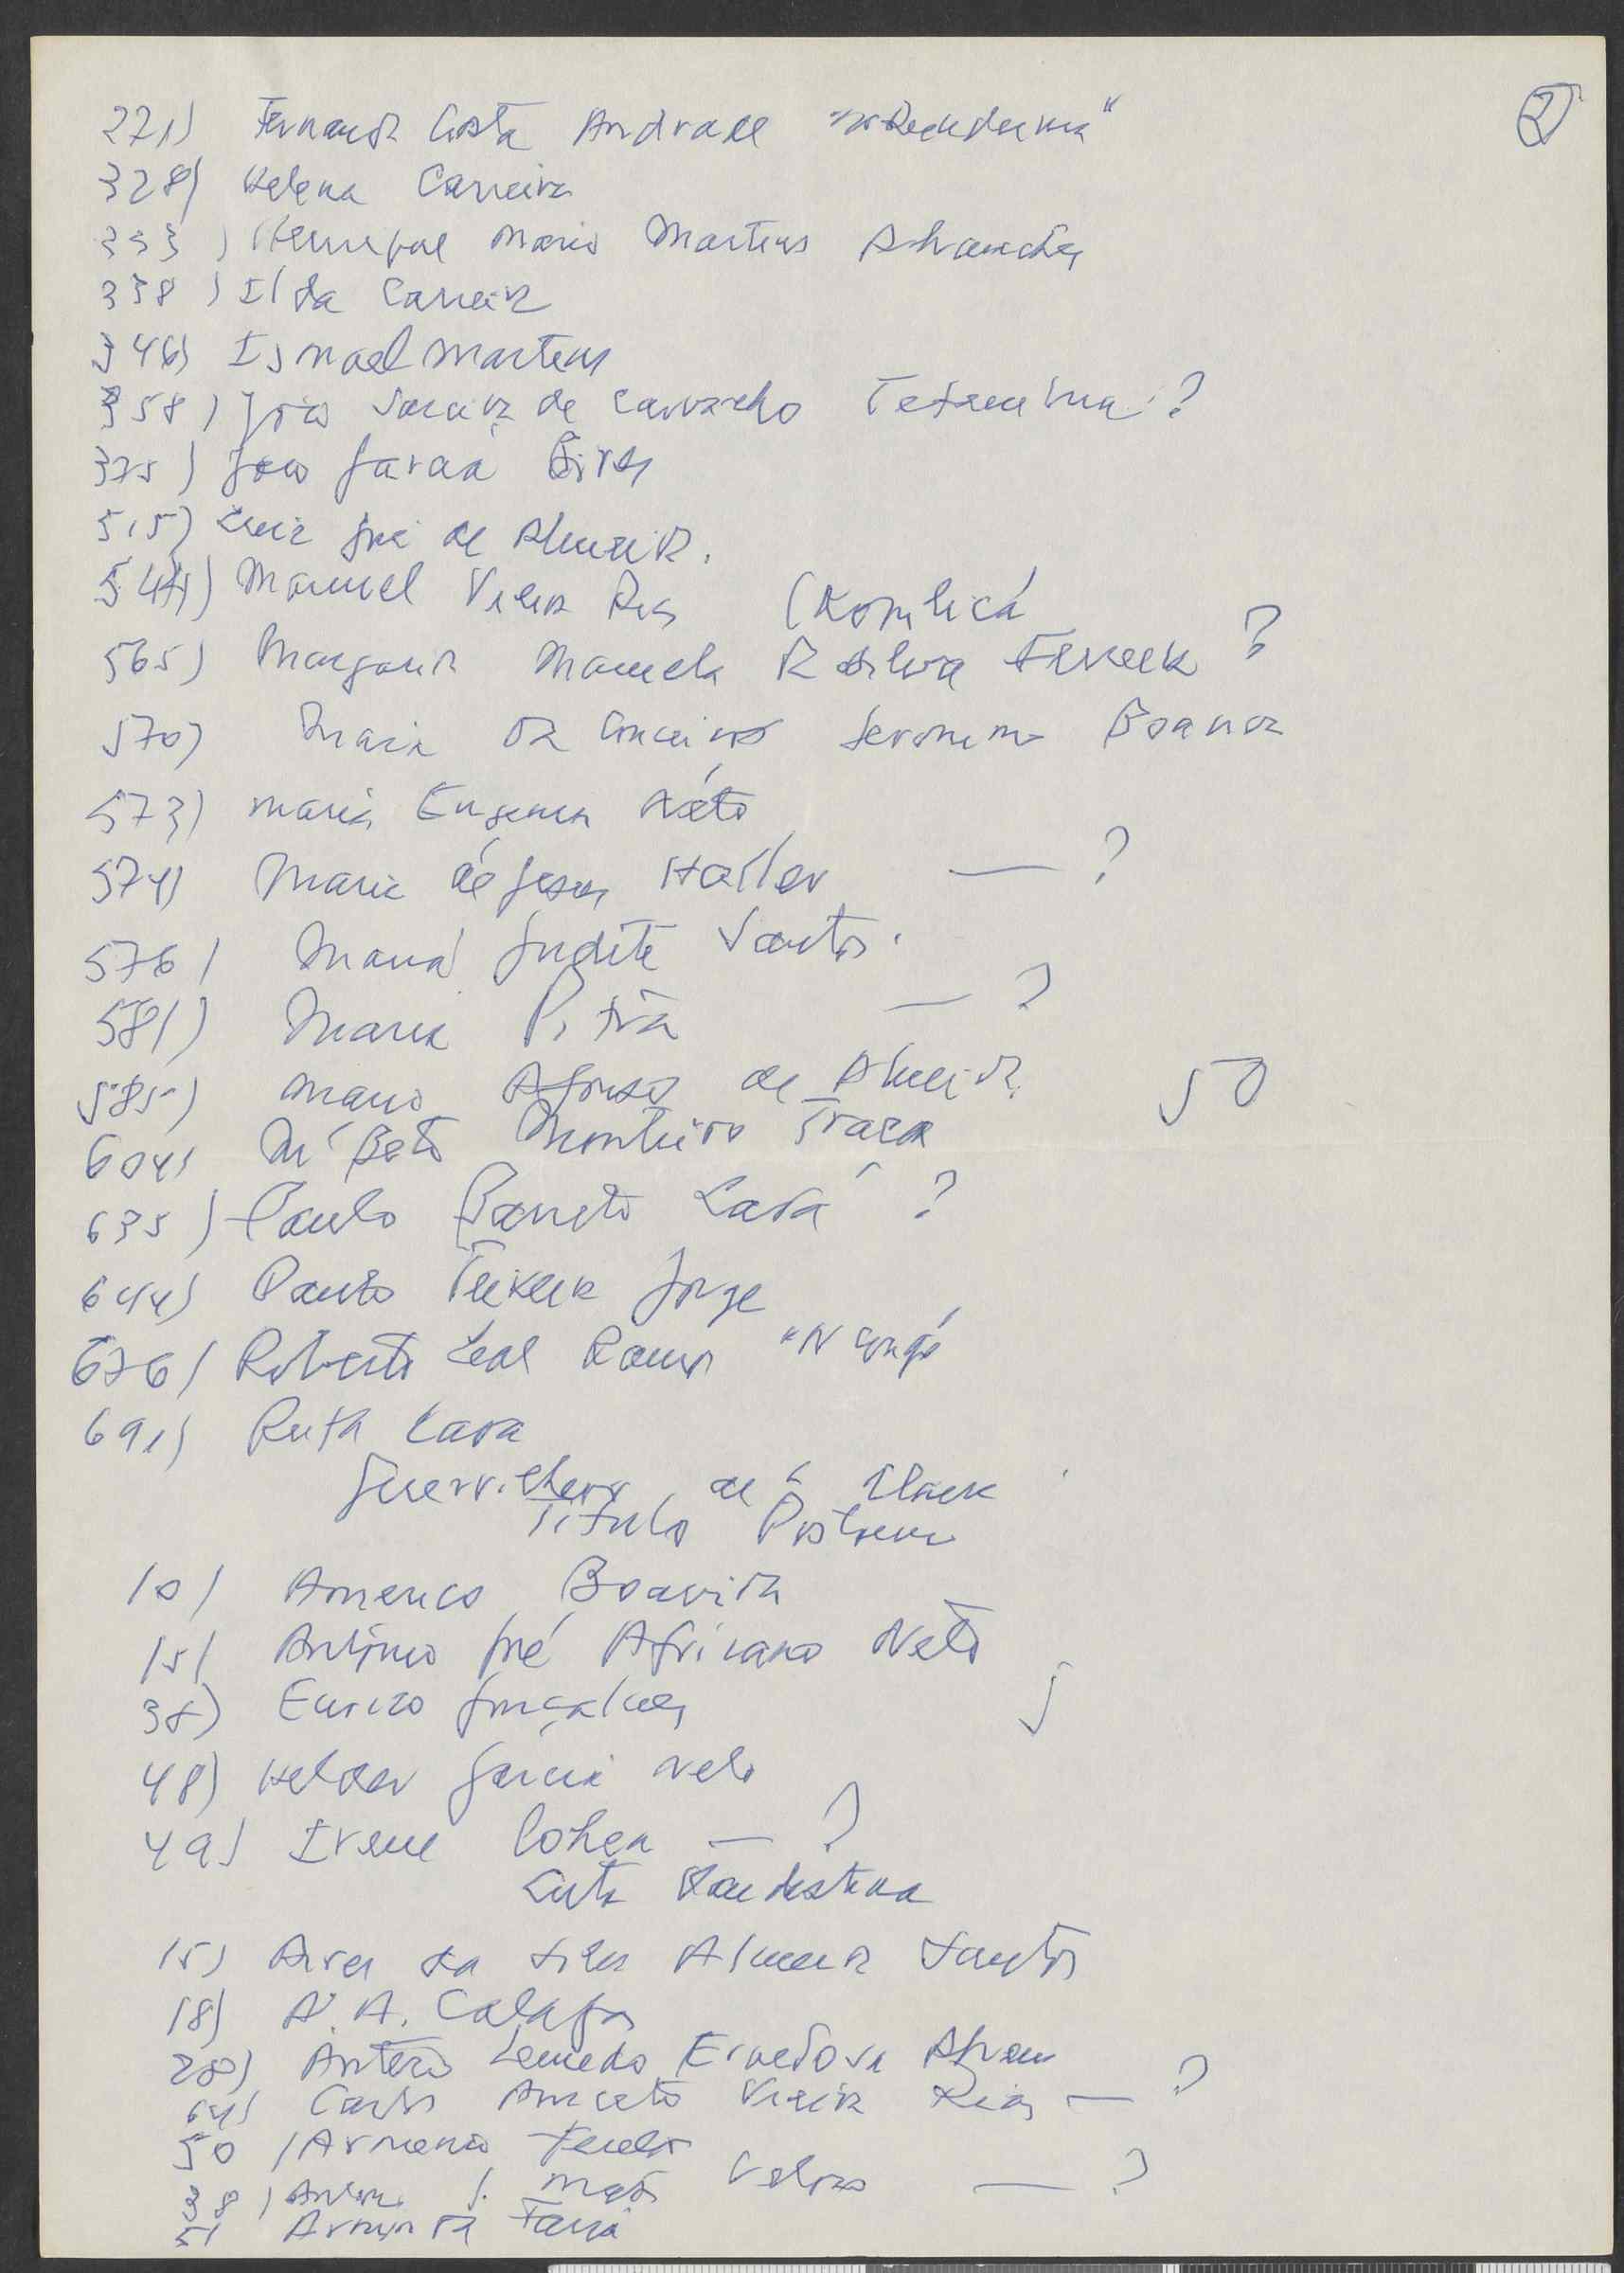 2
271) Fernando Costa Andrade "Ndunduma"
328) Helena Carreira
333) Henrique Mario Martins Abranches
338) Ilda Carreira
346) Ismael Martins
358) João Saraiva de Carvalho Tetembwa?
375) João Garcia Bires
515) Luiz José de Almeida.
544) Manuel Videira Rui (Kopilica
565) Margarida Manuela da Silva ?
570) Maria da Conceição Jeronimo Boavida
573) Maria Eugenia Néto
574) Maria de Jesus Haller — ?
576) Maria Judite Santos.
581) Maria Pitra — ?
585) Mario Afonso de Almeida. 50
604) M'Beto Monteiro Traça
635) Paulo Barreto Lara ?
644) Paulo Teixeira Jorge
676) Roberto Leal Ramos "N'Gongo
691) Ruth Lara
Guerrilhero de 1 Classe
Titulo Postumo
10) Americo Boavida
15) António José Africano Neto
38) Eurico Gonçalves 5
48) Helder Garcia Neto
49) Irene Cohen — ?
Luta Clandestina
15) Aires da Silva Almeida Santos
18) A. A. Calafa
20) Antero Ervedosa Abreu
64) Carlos Aniceto Vieira Dias — ?
50) Armenio
38) Antonio J. Mato Veloso — ?
51 Arminda Faria